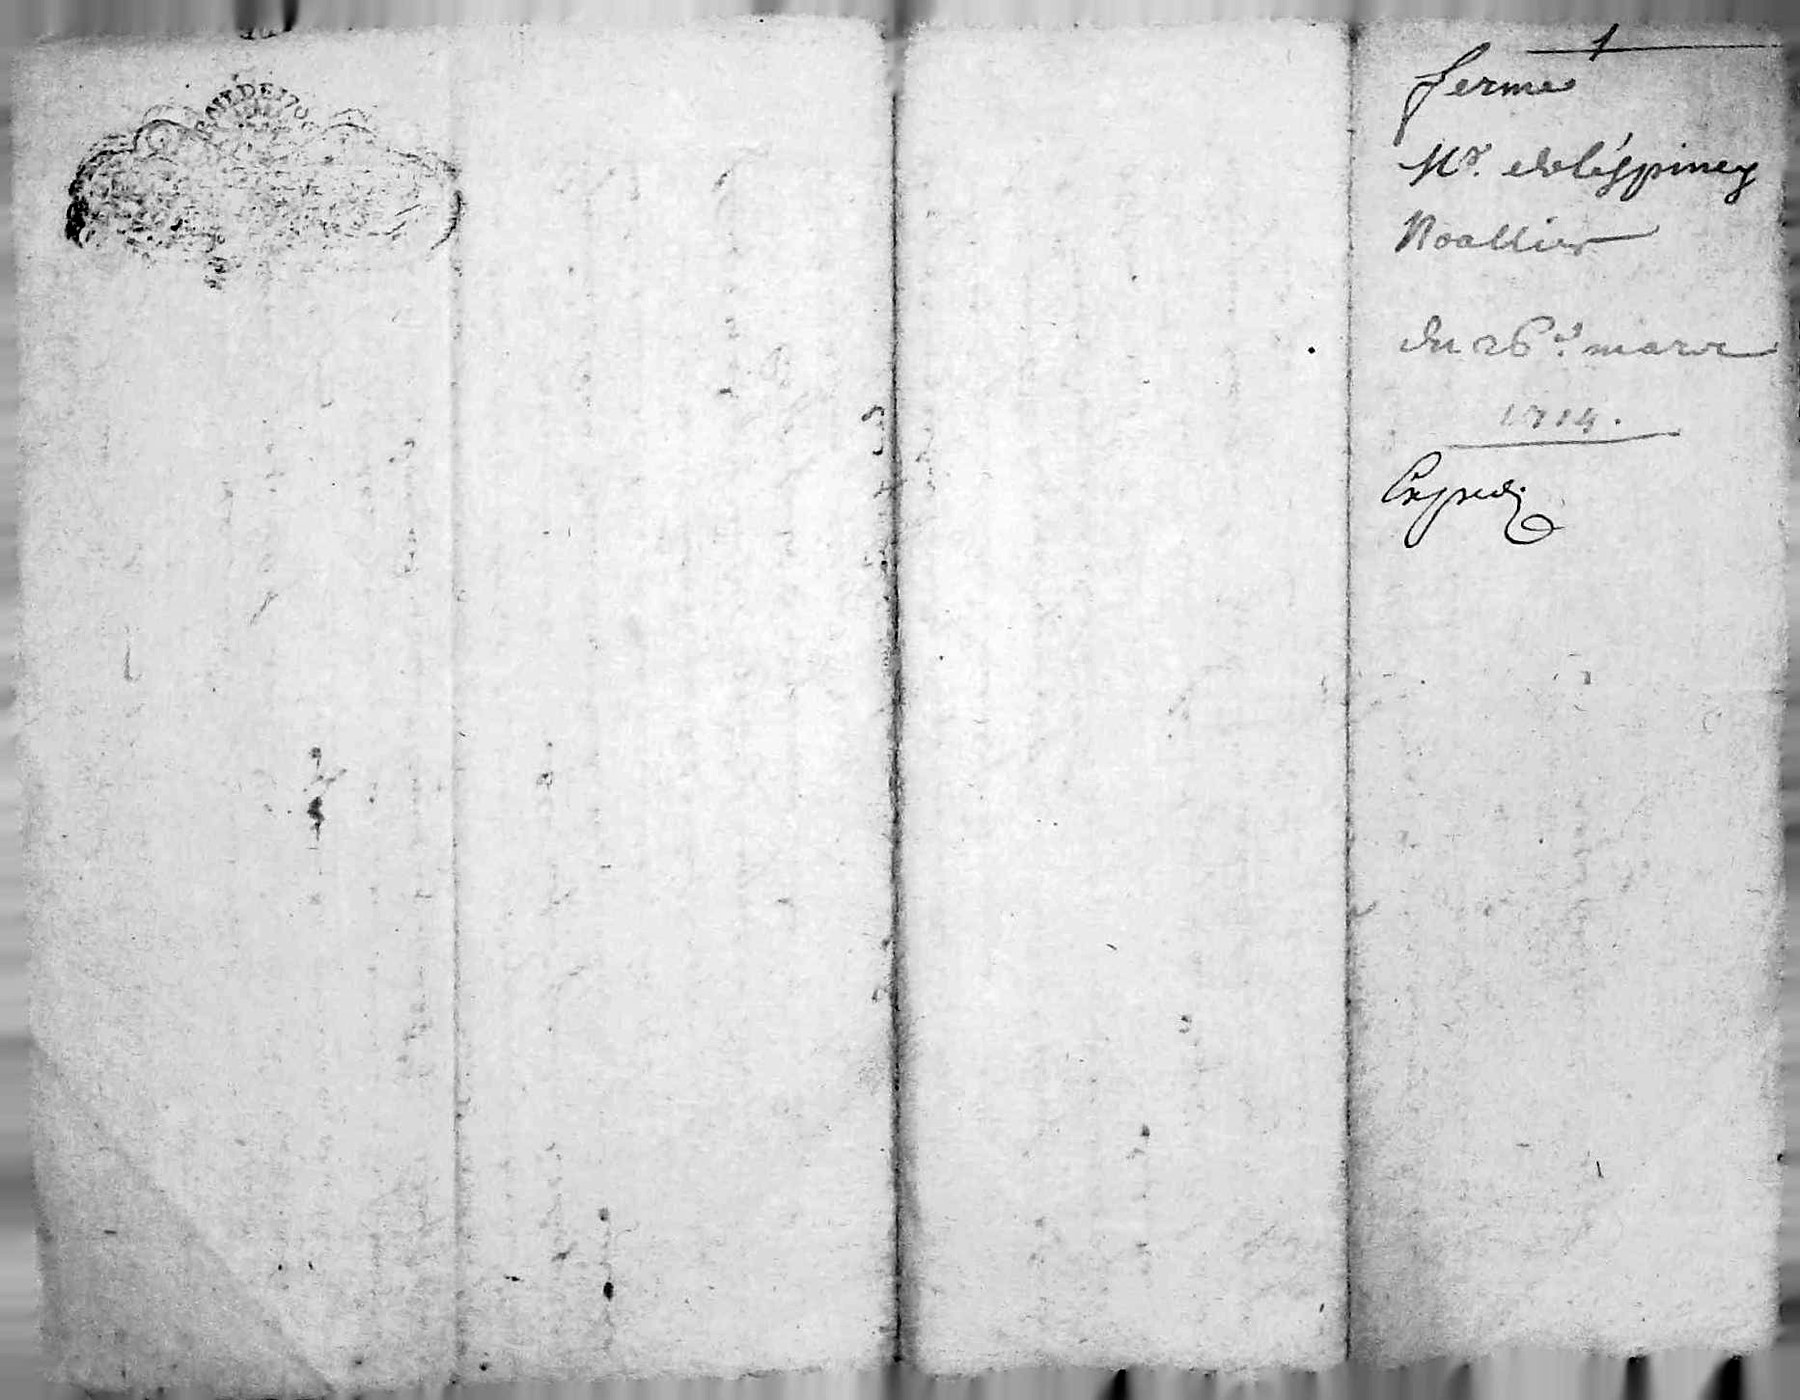 1
ferme
Mr. delespiney
Noallier
du 26e. mars
1714.
Expedi.